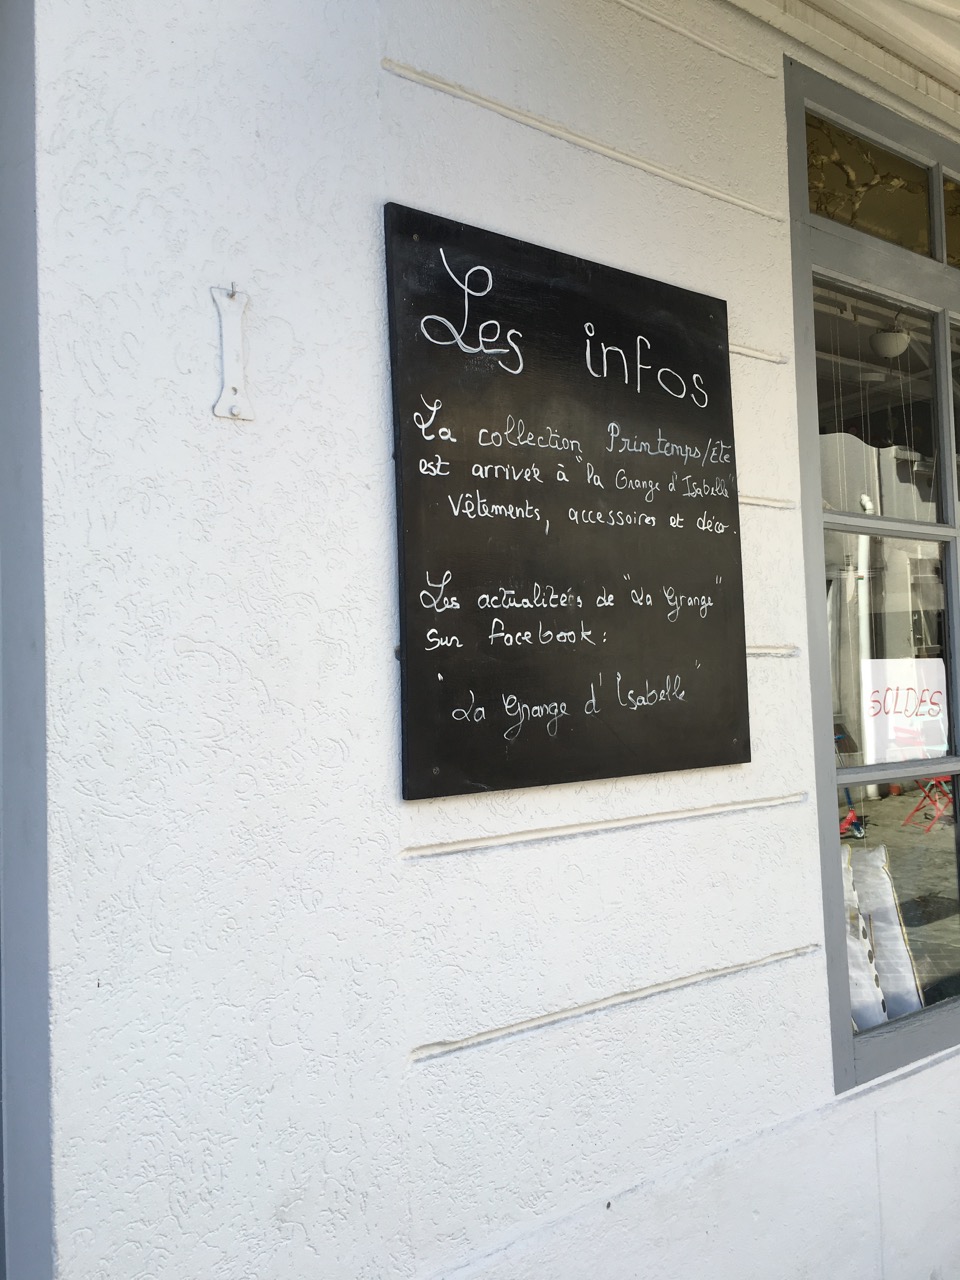 Les infos
La collection Printemps/Eté
est arrivée à "la Grange d'Isabelle"
Vêtements, accessoires et déco.
Les actualités de "La Grange"
sur facebook :
"La Grange d'Isabelle"
SOLDES